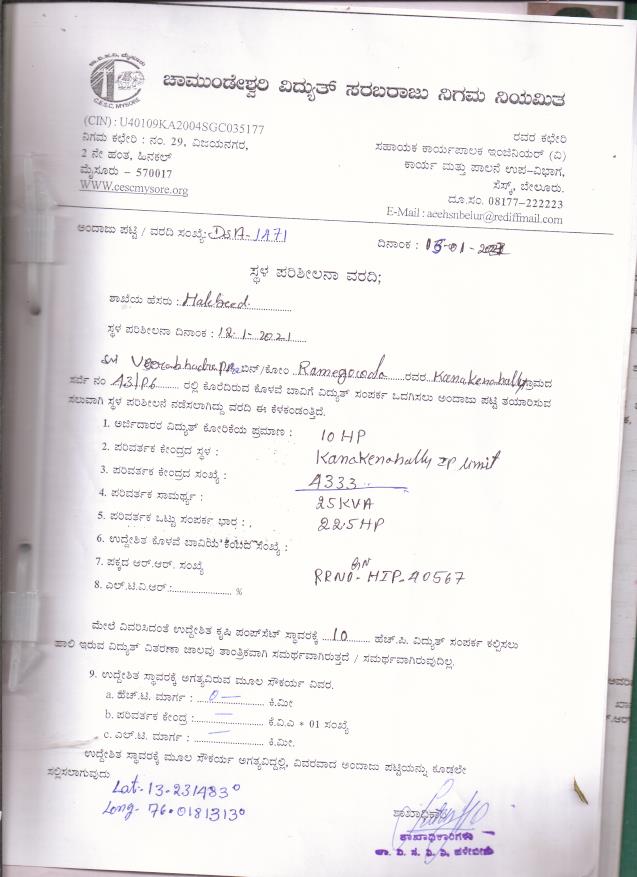 ಚಾ.ವಿ.ಸ.ನಿ, ಮೈಸೂರು
C.E.S.C, MYSORE
ಚಾಮುಂಡೇಶ್ವರಿ ವಿದ್ಯುತ್ ಸರಬರಾಜು ನಿಗಮ ನಿಯಮಿತ
(CIN) : U40109KA2004SGC035177
ನಿಗಮ ಕಛೇರಿ : ನಂ. 29, ವಿಜಯನಗರ,
2 ನೇ ಹಂತ, ಹಿನಕಲ್
ಮೈಸೂರು – 570017
WWW.cescmysore.org
ರವರ ಕಛೇರಿ
ಸಹಾಯಕ ಕಾರ್ಯಪಾಲಕ ಇಂಜಿನಿಯರ್ (ವಿ)
ಕಾರ್ಯ ಮತ್ತು ಪಾಲನೆ ಉಪ-ವಿಭಾಗ,
ಸೆಸ್ಕ್, ಬೇಲೂರು.
ದೂ.ಸಂ. 08177-222223
E-Mail : aeehsnbelur@rediffmail.com
ಅಂದಾಜು ಪಟ್ಟಿ / ವರದಿ ಸಂಖ್ಯೆ: DSA-1A71 ದಿನಾಂಕ :
ಸ್ಥಳ ಪರಿಶೀಲನಾ ವರದಿ;
ಶಾಖೆಯ ಹೆಸರು : Halebeed
ಸ್ಥಳ ಪರಿಶೀಲನಾ ದಿನಾಂಕ : 12-1-2021
ಬಿನ್/ಕೋಂ Ramegowda ರವರ Kanakenahally ಗ್ರಾಮದ
ಸರ್ವೆ ನಂ A3/P6 ರಲ್ಲಿ ಕೊರೆದಿರುವ ಕೊಳವೆ ಬಾವಿಗೆ ವಿದ್ಯುತ್ ಸಂಪರ್ಕ ಒದಗಿಸಲು ಅಂದಾಜು ಪಟ್ಟಿ ತಯಾರಿಸುವ
ಸಲುವಾಗಿ ಸ್ಥಳ ಪರಿಶೀಲನೆ ನಡೆಸಲಾಗಿದ್ದು ವರದಿ ಈ ಕೆಳಕಂಡಂತ್ತಿದೆ.
1. ಅರ್ಜಿದಾರರ ವಿದ್ಯುತ್ ಕೋರಿಕೆಯ ಪ್ರಮಾಣ : 10 HP
2. ಪರಿವರ್ತಕ ಕೇಂದ್ರದ ಸ್ಥಳ : Kanakenahally IP limit
3. ಪರಿವರ್ತಕ ಕೇಂದ್ರದ ಸಂಖ್ಯೆ : A333
4. ಪರಿವರ್ತಕ ಸಾಮರ್ಥ್ಯ : 25KVA
5. ಪರಿವರ್ತಕ ಒಟ್ಟು ಸಂಪರ್ಕ ಭಾರ : 22.5HP
6. ಉದ್ದೇಶಿತ ಕೊಳವೆ ಬಾವಿಯ ಕಂಬದ ಸಂಖ್ಯೆ :
7. ಪಕ್ಕದ ಆರ್.ಆರ್. ಸಂಖ್ಯೆ RRNO- HIP-40567
8. ಎಲ್.ಟಿ.ವಿ.ಆರ್ : %
ಮೇಲೆ ವಿವರಿಸಿದಂತೆ ಉದ್ದೇಶಿತ ಕೃಷಿ ಪಂಪ್‌ಸೆಟ್ ಸ್ಥಾವರಕ್ಕೆ 10 ಹೆಚ್.ಪಿ. ವಿದ್ಯುತ್ ಸಂಪರ್ಕ ಕಲ್ಪಿಸಲು
ಹಾಲಿ ಇರುವ ವಿದ್ಯುತ್ ವಿತರಣಾ ಜಾಲವು ತಾಂತ್ರಿಕವಾಗಿ ಸಮರ್ಥವಾಗಿರುತ್ತದೆ / ಸಮರ್ಥವಾಗಿರುವುದಿಲ್ಲ.
9. ಉದ್ದೇಶಿತ ಸ್ಥಾವರಕ್ಕೆ ಅಗತ್ಯವಿರುವ ಮೂಲ ಸೌಕರ್ಯ ವಿವರ.
a. ಹೆಚ್.ಟಿ. ಮಾರ್ಗ : 0 — ಕಿ.ಮೀ
b. ಪರಿವರ್ತಕ ಕೇಂದ್ರ : — ಕೆ.ವಿ.ಎ * 01 ಸಂಖ್ಯೆ
c. ಎಲ್.ಟಿ. ಮಾರ್ಗ : — ಕಿ.ಮೀ.
ಉದ್ದೇಶಿತ ಸ್ಥಾವರಕ್ಕೆ ಮೂಲ ಸೌಕರ್ಯ ಅಗತ್ಯವಿದ್ದಲ್ಲಿ, ವಿವರವಾದ ಅಂದಾಜು ಪಟ್ಟಿಯನ್ನು ಕೂಡಲೇ
ಸಲ್ಲಿಸಲಾಗುವುದು
Lat- 13.231483°
Long- 76.0181313°
ಶಾಖಾಧಿಕಾರಿ
ಶಾಖಾಧಿಕಾರಿಗಳು
ಚಾ. ವಿ. ಸ. ನಿ. ನಿ, ಹಳೇಬೀಡು